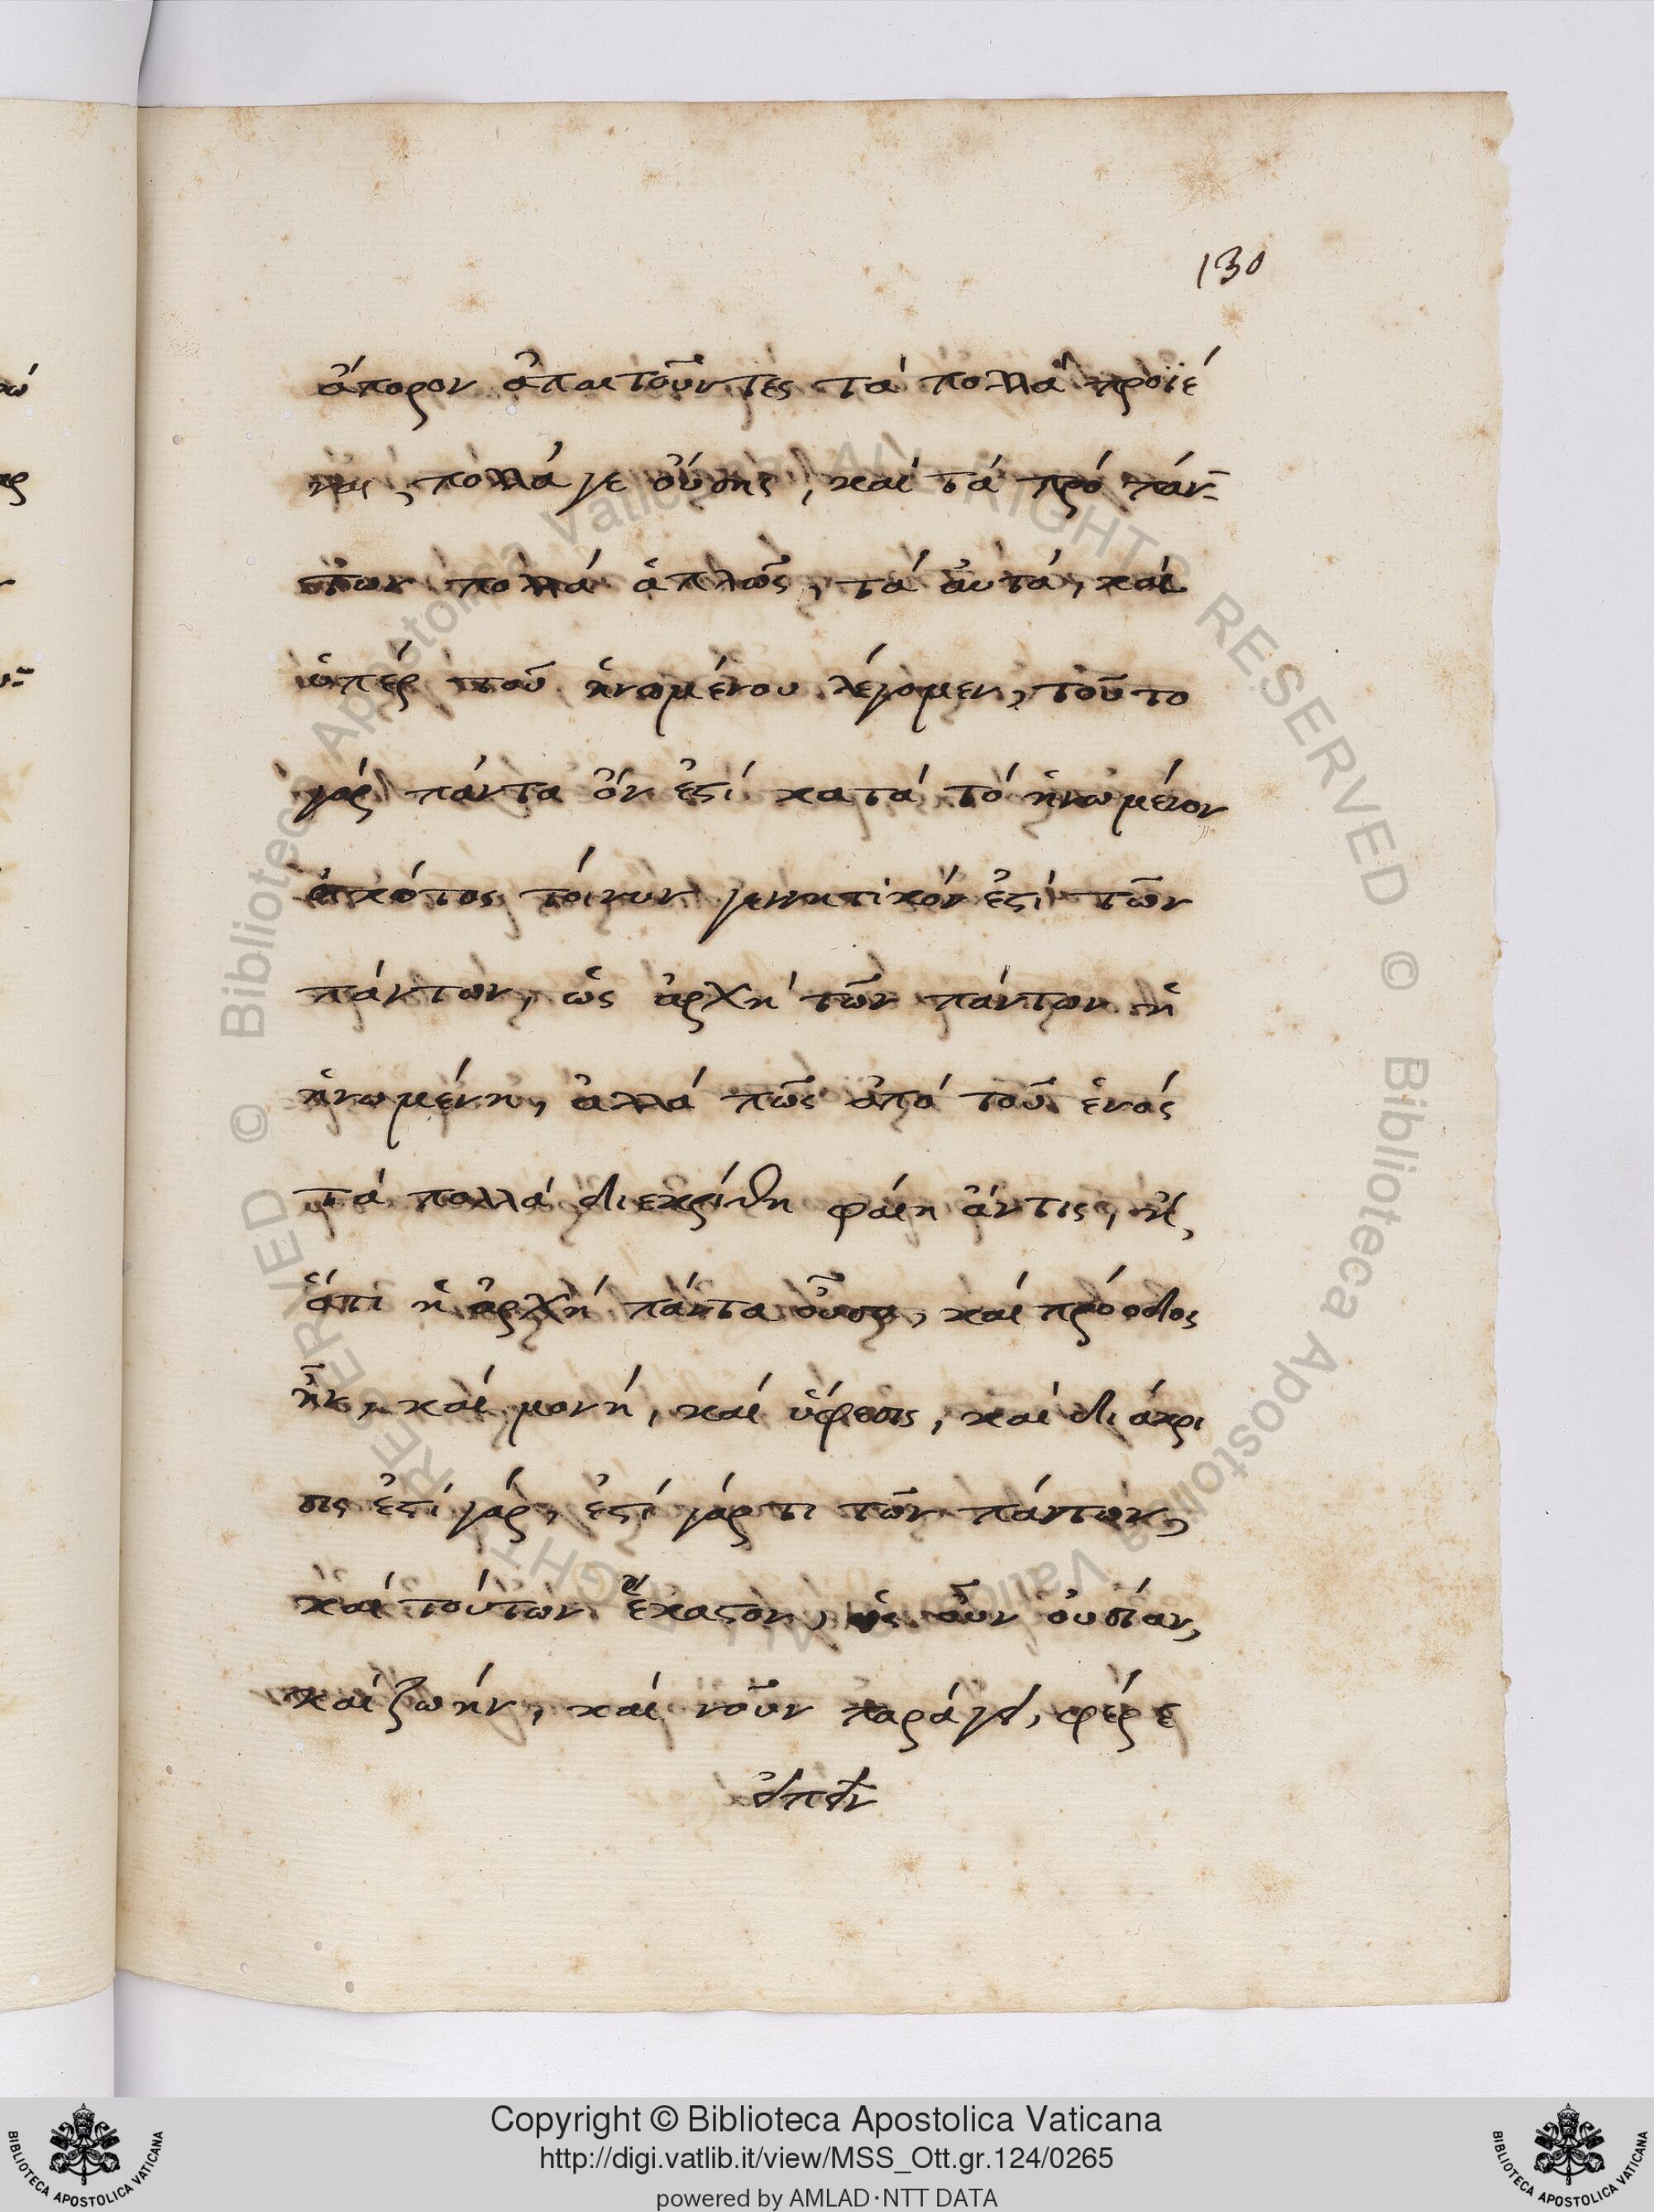 130
ἄπορον ἀπαιτοῦντες τὰ πολλὰ προϊέ
ναι, πολλά γε οὔσης, καὶ τὰ πρὸ πάν-
των πολλὰ ἁπλῶς, τὰ αὐτὰ, καὶ
ὑπὲρ τοῦ ἡνωμένου λέγομεν, τοῦτο
γὰρ πάντα ὄν ἐστὶ κατὰ τὸ ἡνωμένον
εἰκότως τοίνυν γεννητικόν ἐστὶ τῶν
πάντων, ὡς ἀρχὴ τῶν πάντων ἡ
ἡνωμένη, ἀλλὰ πῶς ἀπὸ τοῦ ἑνὸς
τὰ πολλὰ διεκρίθη φαίη ἄντις, ἢ,
ὅτι ἡ ἀρχὴ πάντα οὖσα, καὶ πρόοδος
ἦν, καὶ μονή, καὶ ὕφεσις, καὶ διάκρι
σις ἐστὶ γάρ, ἐστὶ γάρ τι τῶν πάντων,
καὶ τούτων ἕκαστον, ὡς οὖν οὐσίαν,
καὶ ζωήν, καὶ νοῦν παράγει, φέρε
εἰπεῖν
Copyright © Biblioteca Apostolica Vaticana
http://digi.vatlib.it/view/MSS_Ott.gr.124/0265
powered by AMLAD·NTT DATA
BIBLIOTECA APOSTOLICA VATICANA
BIBLIOTECA APOSTOLICA VATICANA
© Biblioteca Apostolica Vaticana ALL RIGHTS RESERVED © Biblioteca Apostolica Vaticana ALL RIGHTS RESERVED